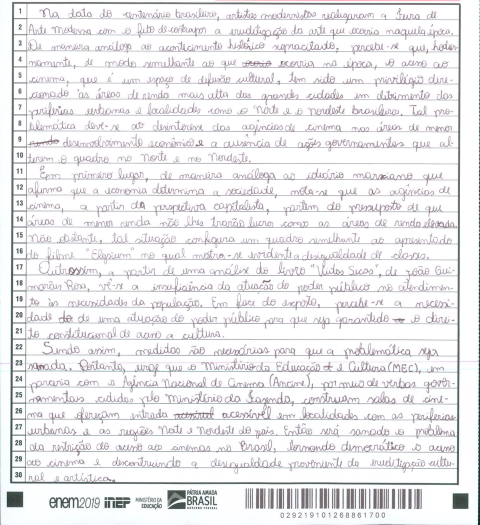 1 Na data do centenário brasileiro, artistas modernistas realizaram a Feira de
2 Arte Moderna com o feito de contrapor a eruditização da arte que ocorria naquela época.
3 De maneira análoga ao acontecimento histórico supracitado, percebe-se que, hodier-
4 namente, de modo semelhante ao que ocorria na época, o acesso ao
5 cinema, que é um espaço de difusão cultural, tem sido um privilégio dire-
6 cionado às áreas de renda mais alta das grandes cidades em detrimento das
7 periferias urbanas e localidades como o Norte e o Nordeste brasileiro. Tal pro-
8 blemática deve-se ao desinteresse das agências de cinema nas áreas de menor
9 desenvolvimento econômico e a ausência de ações governamentais que al-
10 terem o quadro no Norte e no Nordeste.
11 Em primeiro lugar, de maneira análoga ao ideário marxiano que
12 afirma que a economia determina a sociedade, nota-se que as agências de
13 cinema, a partir da perspectiva capitalista, partem do pressuposto de que
14 áreas de menor renda não lhes trarão lucro como as áreas de renda elevada.
15 Não obstante, tal situação configura um quadro semelhante ao apresentado
16 do filme "Elysium" no qual mostra-se evidente a desigualdade de classes.
17 Outrossim, a partir de uma análise do livro "Vidas Secas", de João Gui-
18 marães Rosa, vê-se a insuficiência da atuação do poder público no atendimen-
19 to às necessidades da população. Em face do exposto, percebe-se a necessi-
20 dade de uma atuação do poder público para que seja garantido o direi-
21 to constitucional de acesso a cultura.
22 Sendo assim, medidas são necessárias para que a problemática seja
23 sanada. Portanto, urge que o Ministério da Educação e Cultura (MEC), em
24 parceria com a Agência Nacional de Cinema (Ancine), por meio de verbas gover-
25 namentais cedidas pelo Ministério da Fazenda, construam salas de cine-
26 ma que ofereçam entrada acessível em localidades com as periferias
27 urbanas e as regiões Norte e Nordeste do país. Então será sanado o problema
28 da restrição do acesso aos cinemas no Brasil, tornando democrático o acesso
29 ao cinema e descontruindo a desigualdade proveniente da eruditização cultu-
30 ral e artística.
enem2019 inep MINISTÉRIO DA EDUCAÇÃO PÁTRIA AMADA BRASIL GOVERNO FEDERAL
029219101268861700